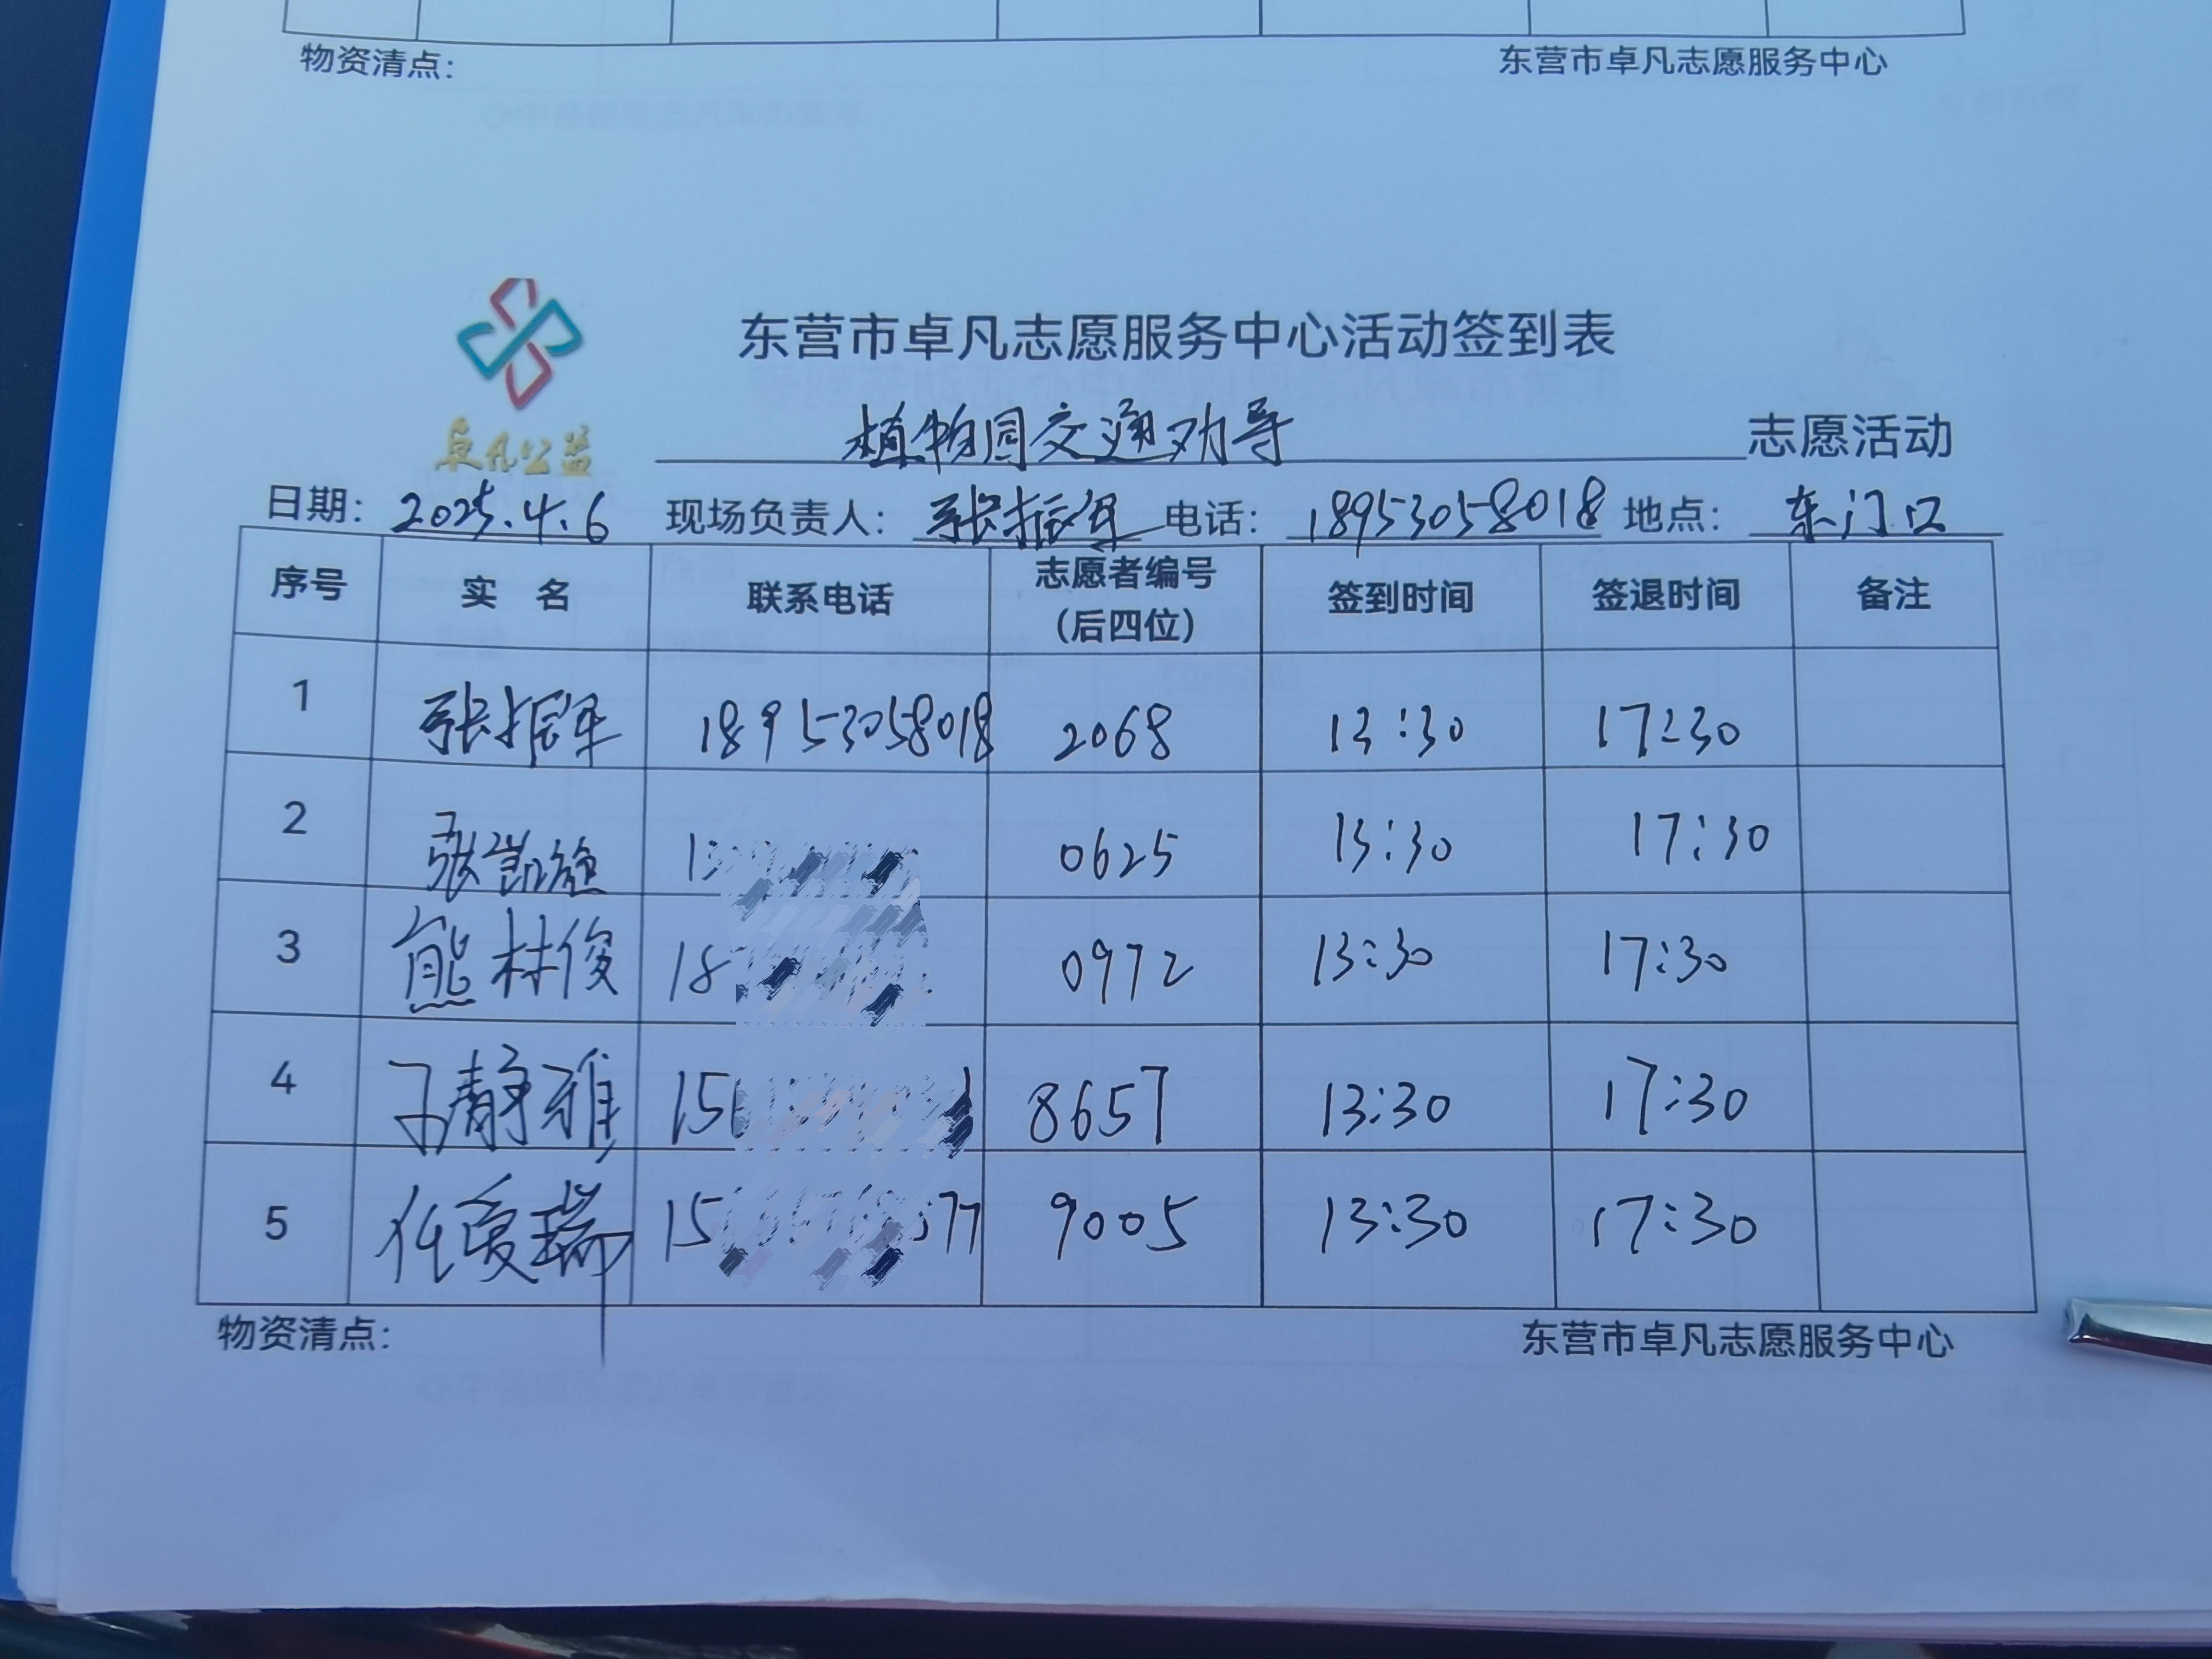 物资清点： 东营市卓凡志愿服务中心
东营市卓凡志愿服务中心活动签到表
卓凡公益
植物园交通劝导 志愿活动
日期： 2025.4.6 现场负责人： 张振军 电话： 18953058018 地点： 东门口
序号 实 名 联系电话 志愿者编号（后四位） 签到时间 签退时间 备注
1 张振军 18953058018 2068 13:30 17:30
2 张凯旋 1 0625 13:30 17:30
3 熊林俊 18 0972 13:30 17:30
4 静雅 15 8657 13:30 17:30
5 任爱瑞 15 77 9005 13:30 17:30
物资清点： 东营市卓凡志愿服务中心